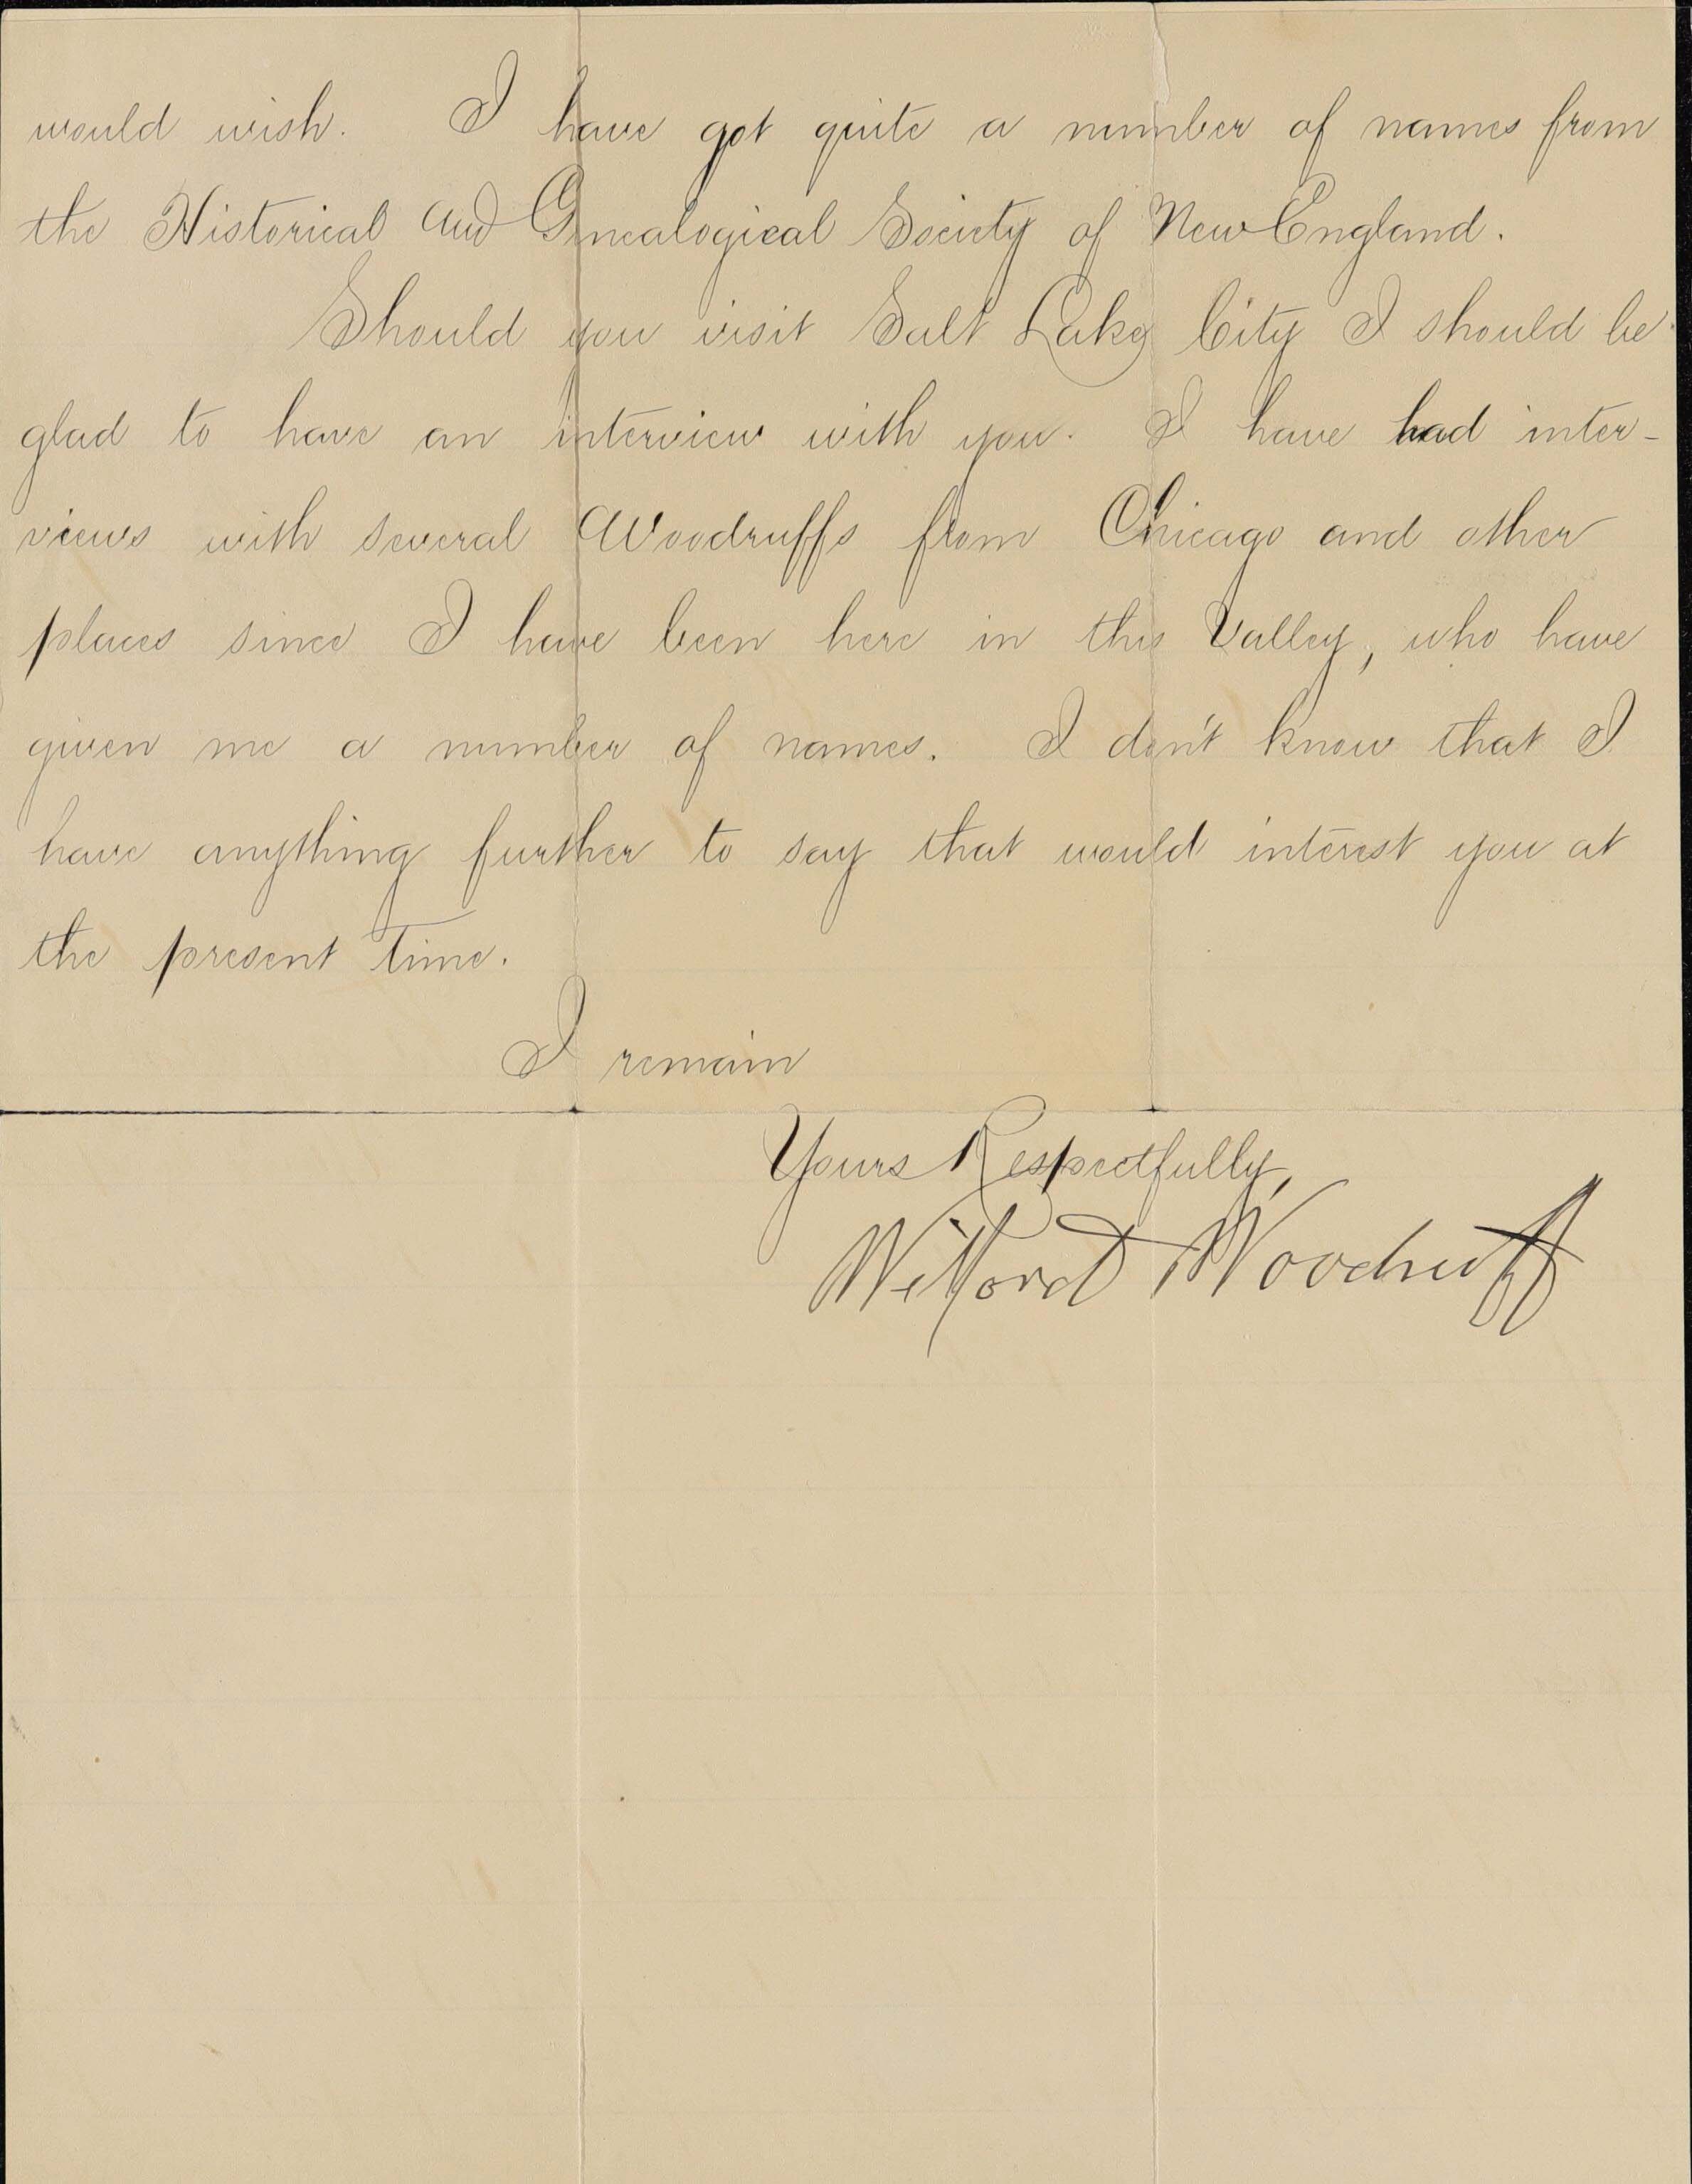 would wish. I have got quite a number of names from
the Historical and Genealogical Society of New England.
Should you visit Salt Lake City I should be
glad to have an interview with you. I have had inter-
views with several Woodruffs from Chicago and other
places since I have been here in this Valley, who have
given me a number of names. I don't know that I
have anything further to say that would interest you at
the present time.
I remain
Yours Respectfully,
Wilford Woodruff